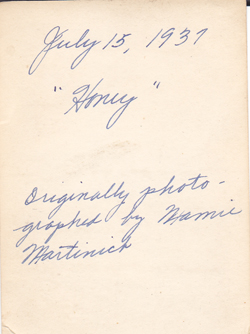 July 15, 1937
"Honey"
Originally photo-
graphed by Mamie
Martinick